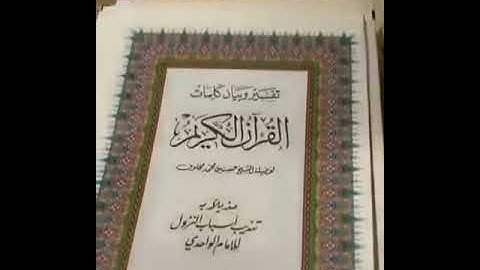 تفسير وبيان كلمات
القرآن الكريم
لفضيلة الشيخ حسنين محمد مخلوف
تهذيب أسباب النزول
للإمام الواحدي